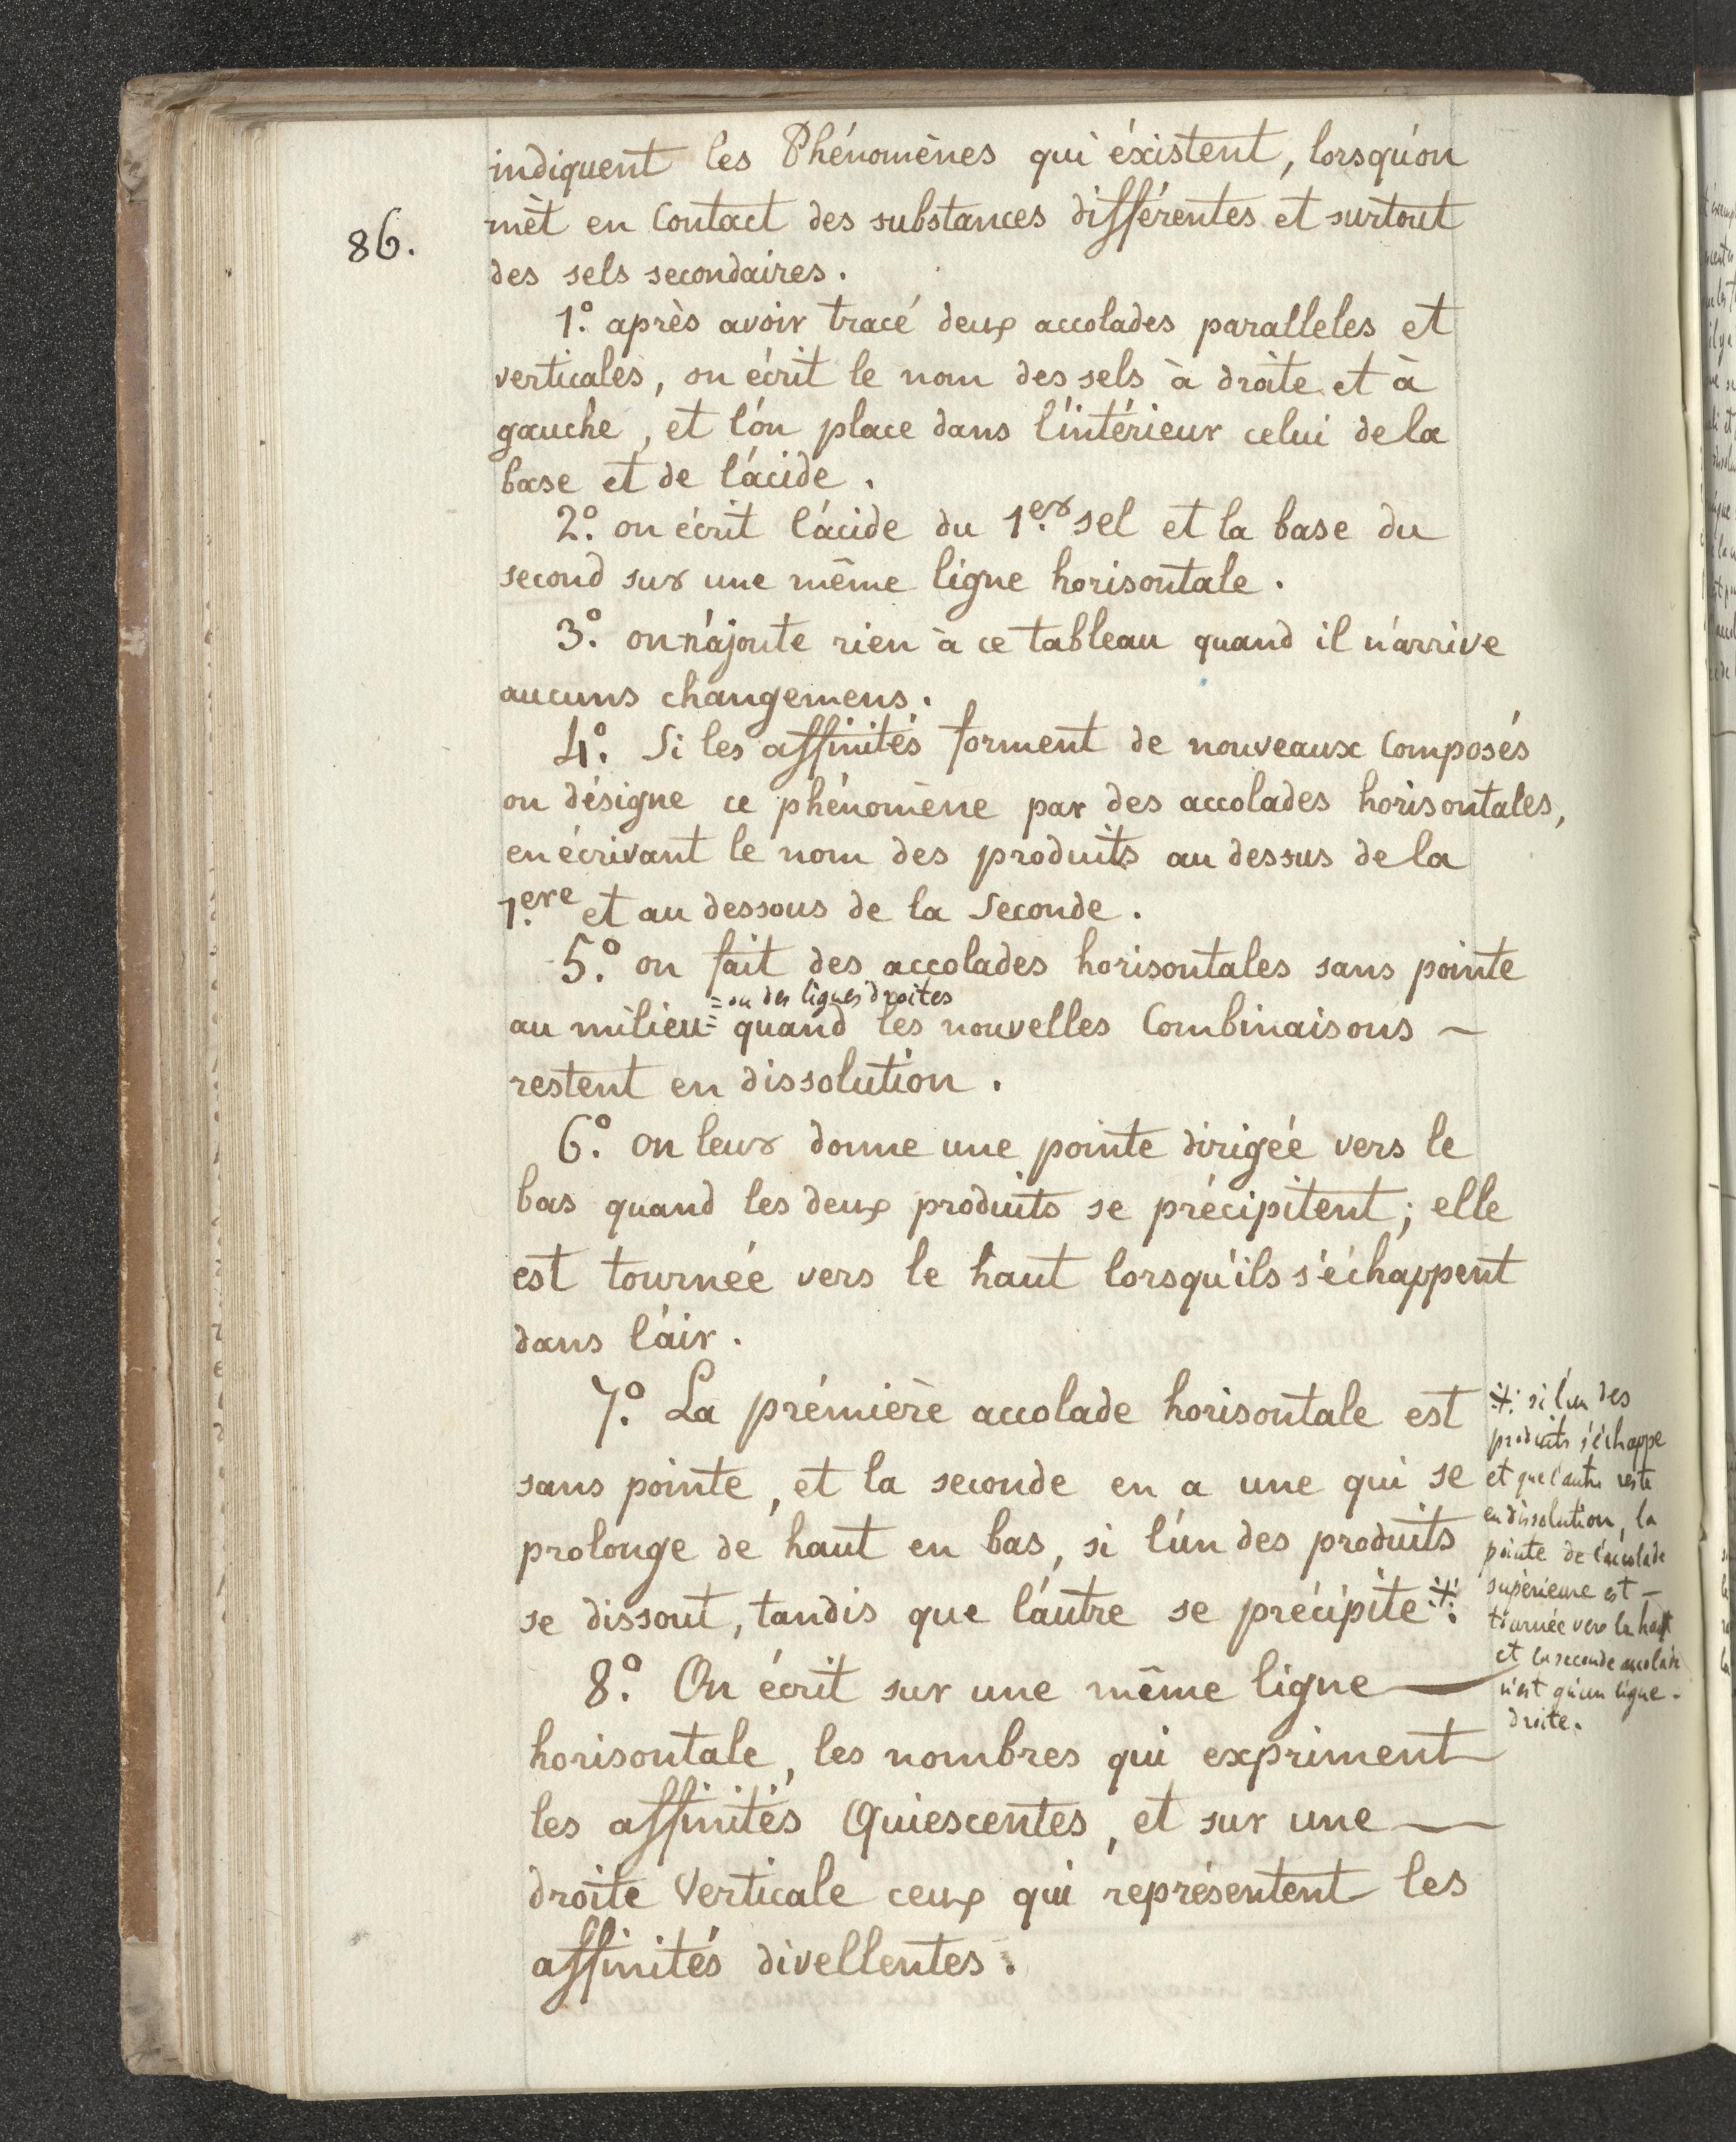 indiquent les Phénomènes qui éxistent, lorsqu'on
86.
mèt en Contact des substances différentes et surtout
des sels secondaires.
1.° après avoir tracé deux accolades paralleles et
verticales, on écrit le nom des sels à droite et à
gauche, et l'on place dans l'intérieur celui de la
base et de l'acide.
2.° on écrit l'acide du 1.er sel et la base du
second sur une même ligne horisontale.
3.° on n'ajoute rien à ce tableau quand il n'arrive
aucuns changemens.
4.° Si les affinités forment de nouveaux Composés
on désigne ce phénomène par des accolades horisontales,
en écrivant le nom des produits au dessus de la
1.ere et au dessous de la Seconde.
5.° on fait des accolades horisontales sans pointe
= ou des lignes droites
au milieu= quand les nouvelles Combinaisons ~
restent en dissolution.
6.° on leur donne une pointe dirigée vers le
bas quand les deux produits se précipitent; elle
est tournée vers le haut lorsqu'ils s'échappent
dans l'air.
7.° La prémière accolade horisontale est
sans pointe, et la seconde en a une qui se
prolonge de haut en bas, si l'un des produits
se dissout, tandis que l'autre se précipite ⁜
⁜ si l'un des
produits s'échappe
et que l'autre reste
en dissolution, la
pointe de l'accolade
supérieure est —
tournée vers le haut
et la seconde accolade
n'est qu'un ligne -
droite.
8.° On écrit sur une même ligne —
horisontale, les nombres qui expriment
les affinités Quiescentes, et sur une —
droite Verticale ceux qui représentent les
affinités divellentes.